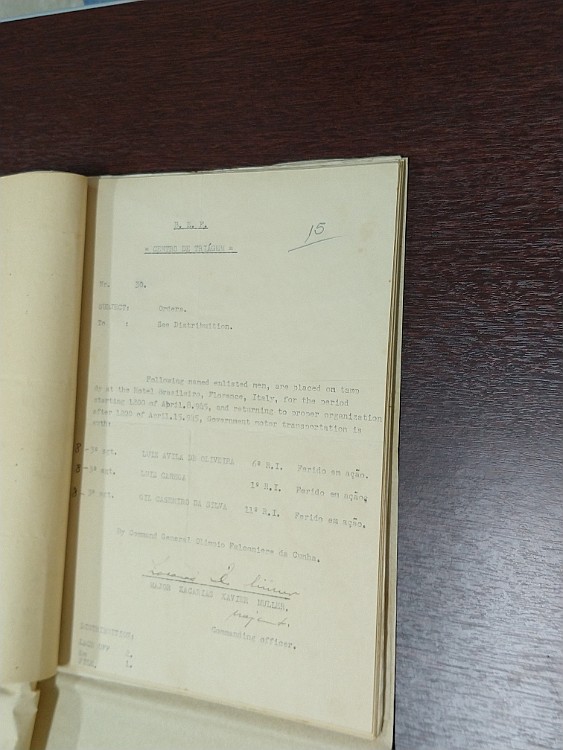 B. E. F.
15
= CENTRO DE TRIÁGEM =
No. 38.
SUBJECT: Orders.
To : See Distribuition.
Following named enlisted men, are placed on temp
dy at the Hotel Brasileiro, Florence, Italy, for the period
starting 1,000 of April.8.945, and returning to proper organization
after 1,000 of April.15.945, Government motor transportation is
auth:
3º sgt. LUIZ AVILA DE OLIVEIRA 6º R.I. Ferido em ação.
3º sgt. LUIZ 1º R.I. Ferido em ação.
3º sgt. GIL CASEMIRO DA SILVA 11º R.I. Ferido em ação.
By Command General Olimpio Falconiere da Cunha.
MAJOR ZACARIAS XAVIER MULLER.
Commanding officer.
DISTRIBUTION:
2.
1.